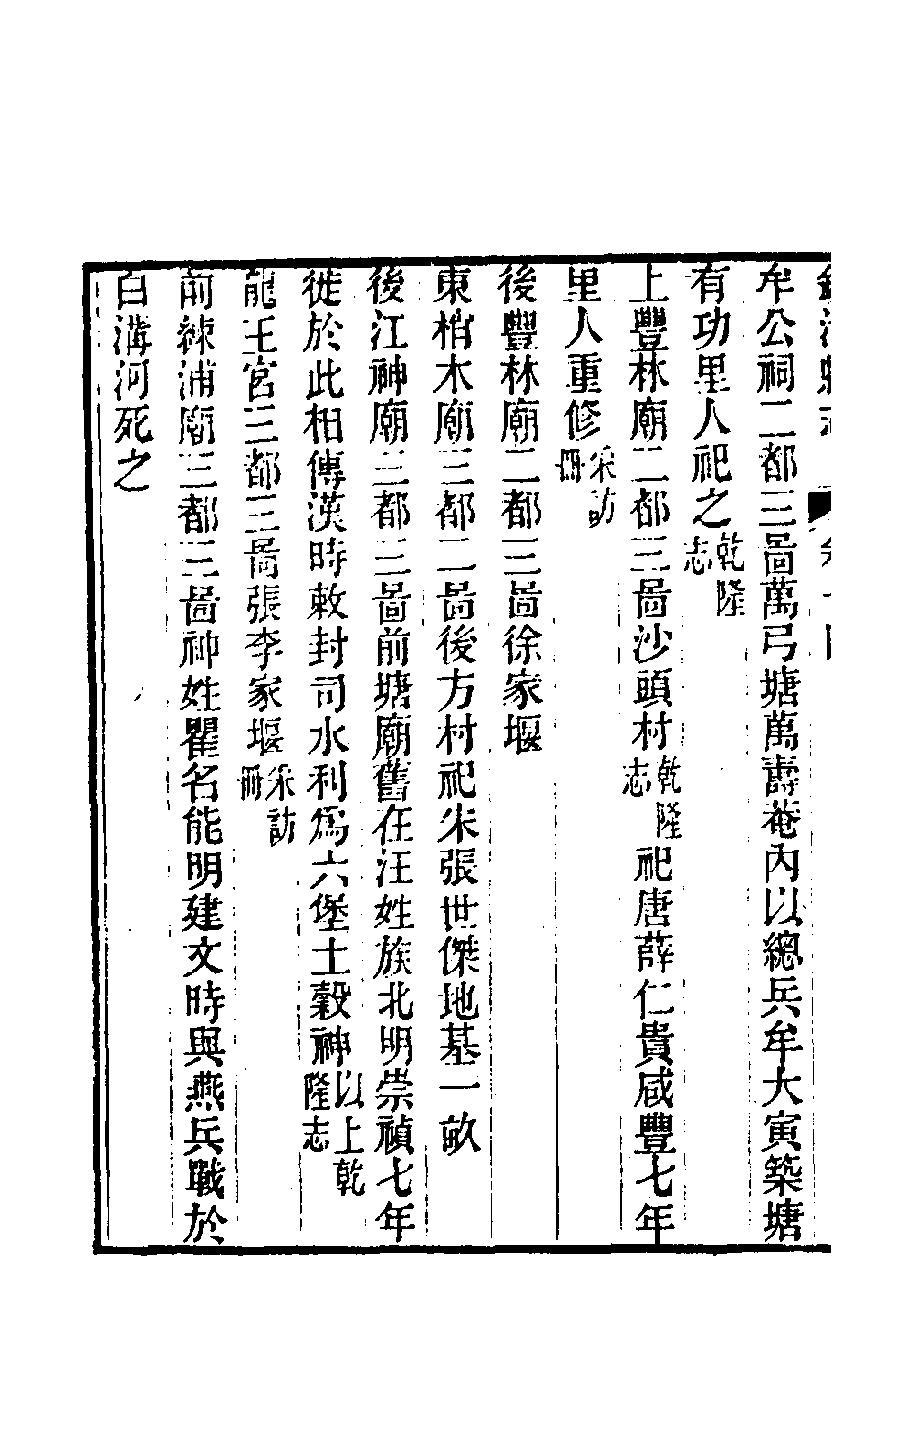 牟公祠二都三啚萬弓塘萬壽菴內以總兵牟大寅築塘
有功里人祀之乾隆志
上豐林廟二都三啚沙頭村乾隆志祀唐薛仁貴咸豐七年
里人重修采訪冊
後豐林廟二都三啚徐家堰
東栢木廟三都二啚後方村祀朱張世傑地基一畝
後江神廟三都三啚前塘廟舊在汪姓族北明崇禎七年
徙於此相傳漢時敕封司水利爲六堡土穀神以上乾隆志
龍王宮三都三啚張李家堰采訪冊
前練浦廟三都三啚神姓瞿名能明建文時與燕兵戰於
白溝河死之